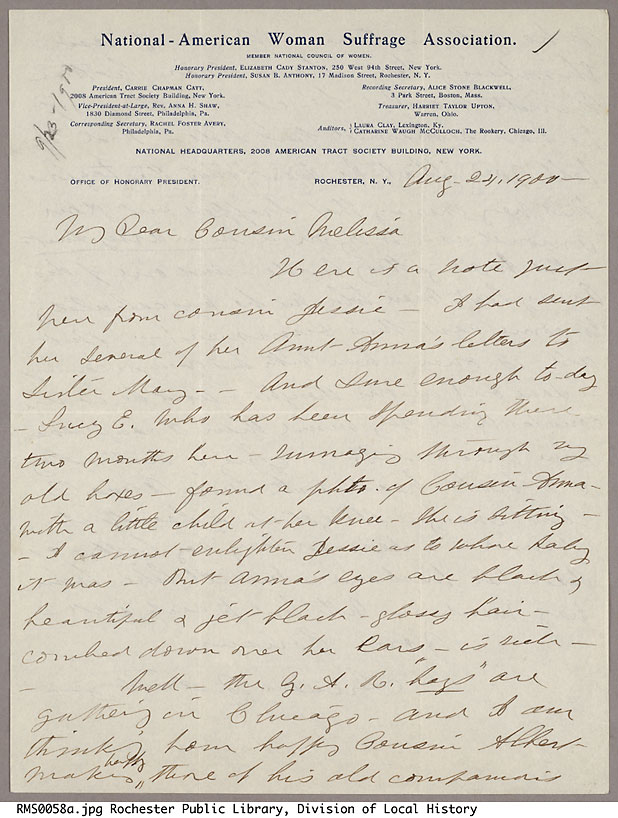 National-American Woman Suffrage Association.
MEMBER NATIONAL COUNCIL OF WOMEN.
Honorary President, ELIZABETH CADY STANTON, 250 West 94th Street, New York.
Honorary President, SUSAN B. ANTHONY, 17 Madison Street, Rochester, N. Y.
President, CARRIE CHAPMAN CATT,
2008 American Tract Society Building, New York.
Vice-President-at-Large, REV. ANNA H. SHAW,
1830 Diamond Street, Philadelphia, Pa.
Corresponding Secretary, RACHEL FOSTER AVERY,
Philadelphia, Pa.
Recording Secretary, ALICE STONE BLACKWELL,
3 Park Street, Boston, Mass.
Treasurer, HARRIET TAYLOR UPTON,
Warren, Ohio.
Auditors, { LAURA CLAY, Lexington, Ky.
CATHARINE WAUGH MCCULLOCH, The Rookery, Chicago, Ill.
NATIONAL HEADQUARTERS, 2008 AMERICAN TRACT SOCIETY BUILDING, NEW YORK.
OFFICE OF HONORARY PRESIDENT.
ROCHESTER, N. Y., Aug. 24, 1900
My Dear Cousin Melissa
Here is a note just
here from cousin Jessie — I had sent
her several of her Aunt Anna's letters to
Sister Mary — And sure enough to-day
- Lucy E. who has been spending these
two months here — rumaging through my
old boxes — found a photo. of Cousin Anna —
with a little child at her knee — She is sitting —
- I cannot enlighten Jessie as to whose baby
it was — But Anna's eyes are black &
beautiful & jet black — glossy hair —
combed down over her Ears — is rich —
- Well — the G. A. R. "boys" are
gathering in Chicago — and I am
thinking how happy Cousin Albert
making happy those of his old companions
RMS0058a.jpg Rochester Public Library, Division of Local History